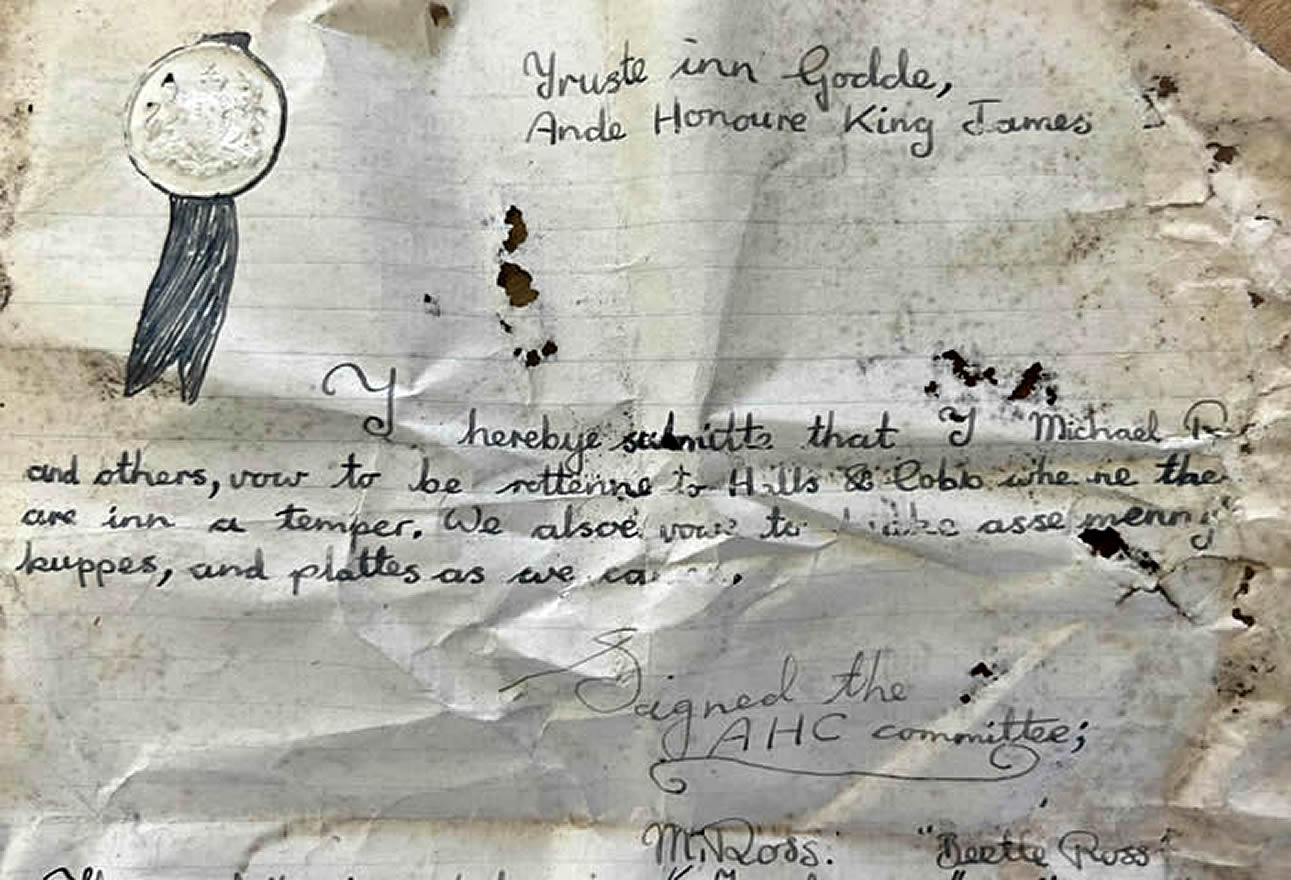 Yruste inn Godde,
Ande Honoure King James
Y herebye submitte that Y Michael
and others, vow to be rottenne to Hills & Cobb the
are inn a temper. We alsoe vow to asse menny
kuppes, and plattes as we
Saigned the
AHC committee;
M. Ross. "Beette Ross"